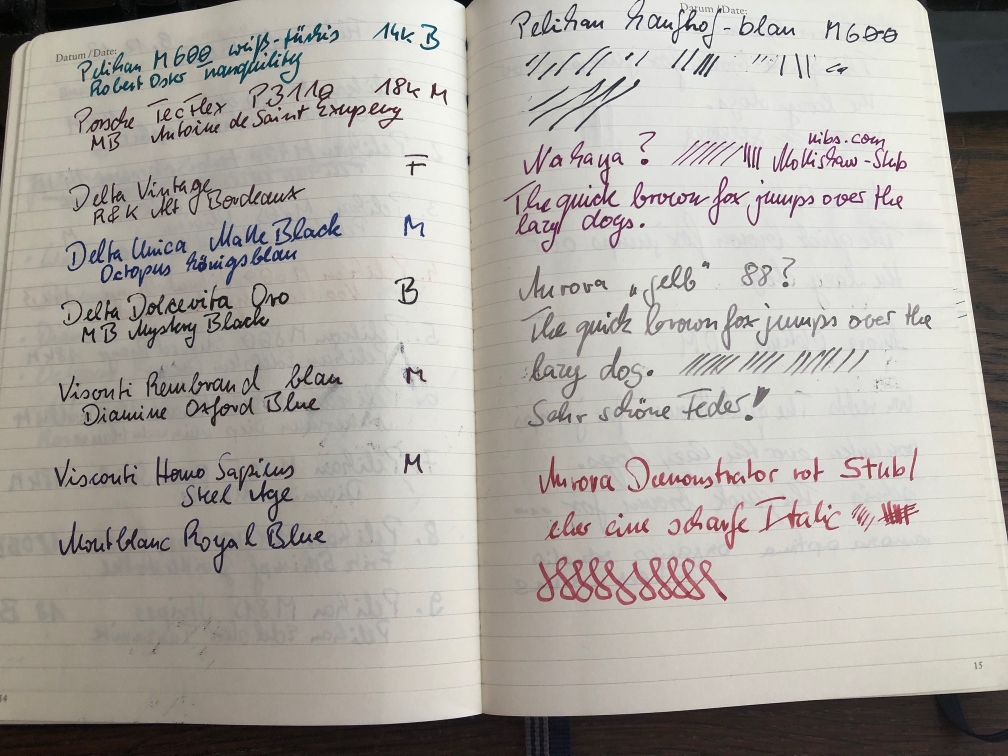 Datum / Date:
Pelikan M600 weiß-türkis 14k B
Robert Oster Tranquility
Porsche TecFlex P3110 18k M
MB Antoine de Saint Exupery
Delta Vintage F
R&K Alt Bordeaux
Delta Unica Matte Black M
Octopus Königsblau
Delta Dolcevita Oro B
MB Mystery Black
Visconti Rembrand blau M
Diamine Oxford Blue
Visconti Homo Sapiens M
Steel Age
Montblanc Royal Blue
14
Datum / Date:
Pelikan -blau M600
Nakaya ? nibs.com
Stub
The quick brown fox jumps over the
lazy dogs.
Aurora „gelb“ 88?
The quick brown fox jumps over the
lazy dog.
Sehr schöne Feder!
Aurora Demonstrator rot Stub/
eher eine scharfe Italic
15